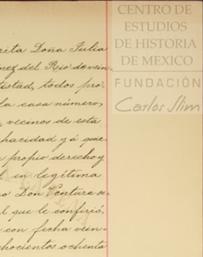 CENTRO DE
ESTUDIOS
DE HISTORIA
DE MEXICO
FUNDACIÓN
Carlos Slim
rita Doña Julia
nez del Rio
estad, todos pro
la casa número,
vecinos de esta
capacidad y á que
propio derecho y
en legítima
Don Ventura
l que le confirió,
con fecha vein
chocientos ochenta